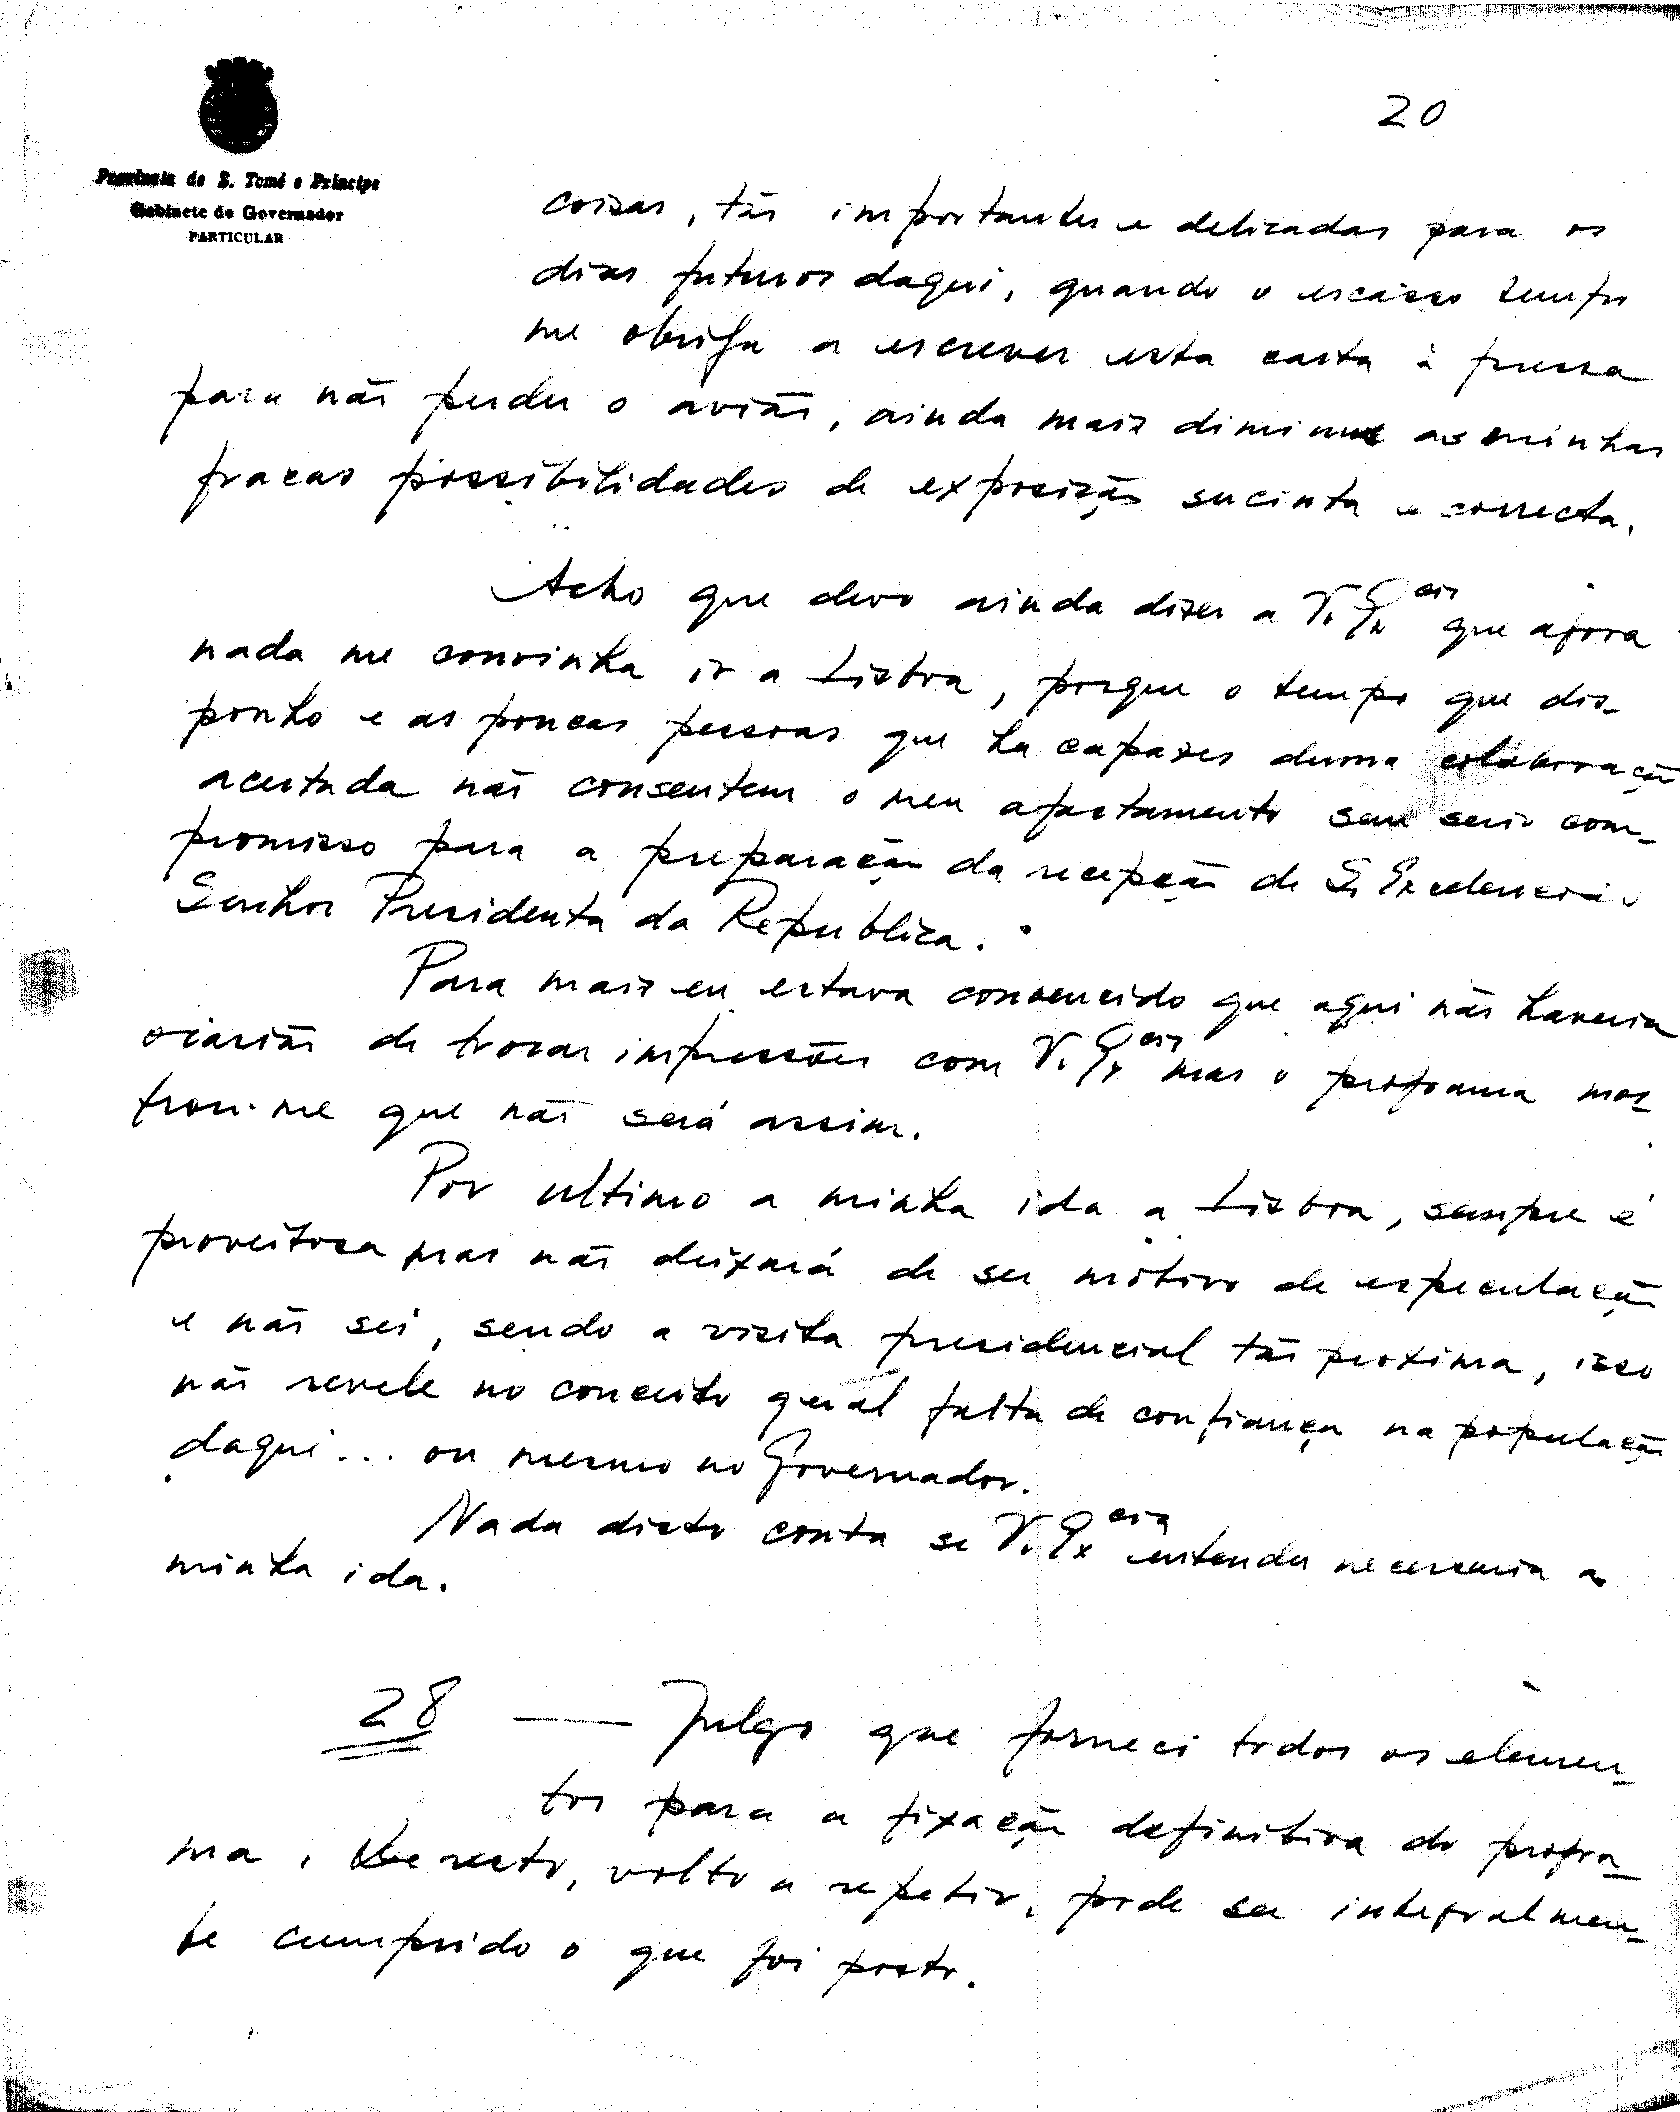 20
Província de S. Tomé e Príncipe
Gabinete do Governador
PARTICULAR
coisas, tão importantes e delicadas para os
dias futuros daqui, quando o escasso tempo
me obriga a escrever esta carta à pressa
para não perder o avião, ainda mais diminue as minhas
fracas possibilidades de exposição sucinta e correcta.
Acho que devo ainda dizer a V. Ex.cia que agora
nada me convinha ir a Lisboa, porque o tempo que dis-
ponho e as poucas pessoas que ha capazes duma colaboração
acertada não consentem o meu afastamento sem serio com-
promisso para a preparação da recepção de S. Excelencia o
Senhor Presidente da Republica.
Para mais eu estava convencido que aqui não haveria
ocasião de trocar impressões com V. Ex.cia mas o programa mos-
trou-me que não será assim.
Por ultimo a minha ida a Lisboa, sempre é
proveitosa mas não deixará de ser motivo de especulação
e não sei, sendo a visita presidencial tão proxima, isso
não revele no conceito geral falta de confiança na população
daqui... ou mesmo no Governador.
Nada disto conta se V. Ex.cia entender necessaria a
minha ida.
28 — Julgo que forneci todos os elemen-
tos para a fixação definitiva do progra-
ma. De resto, volto a repetir, pode ser integralmen-
te cumprido o que foi posto.